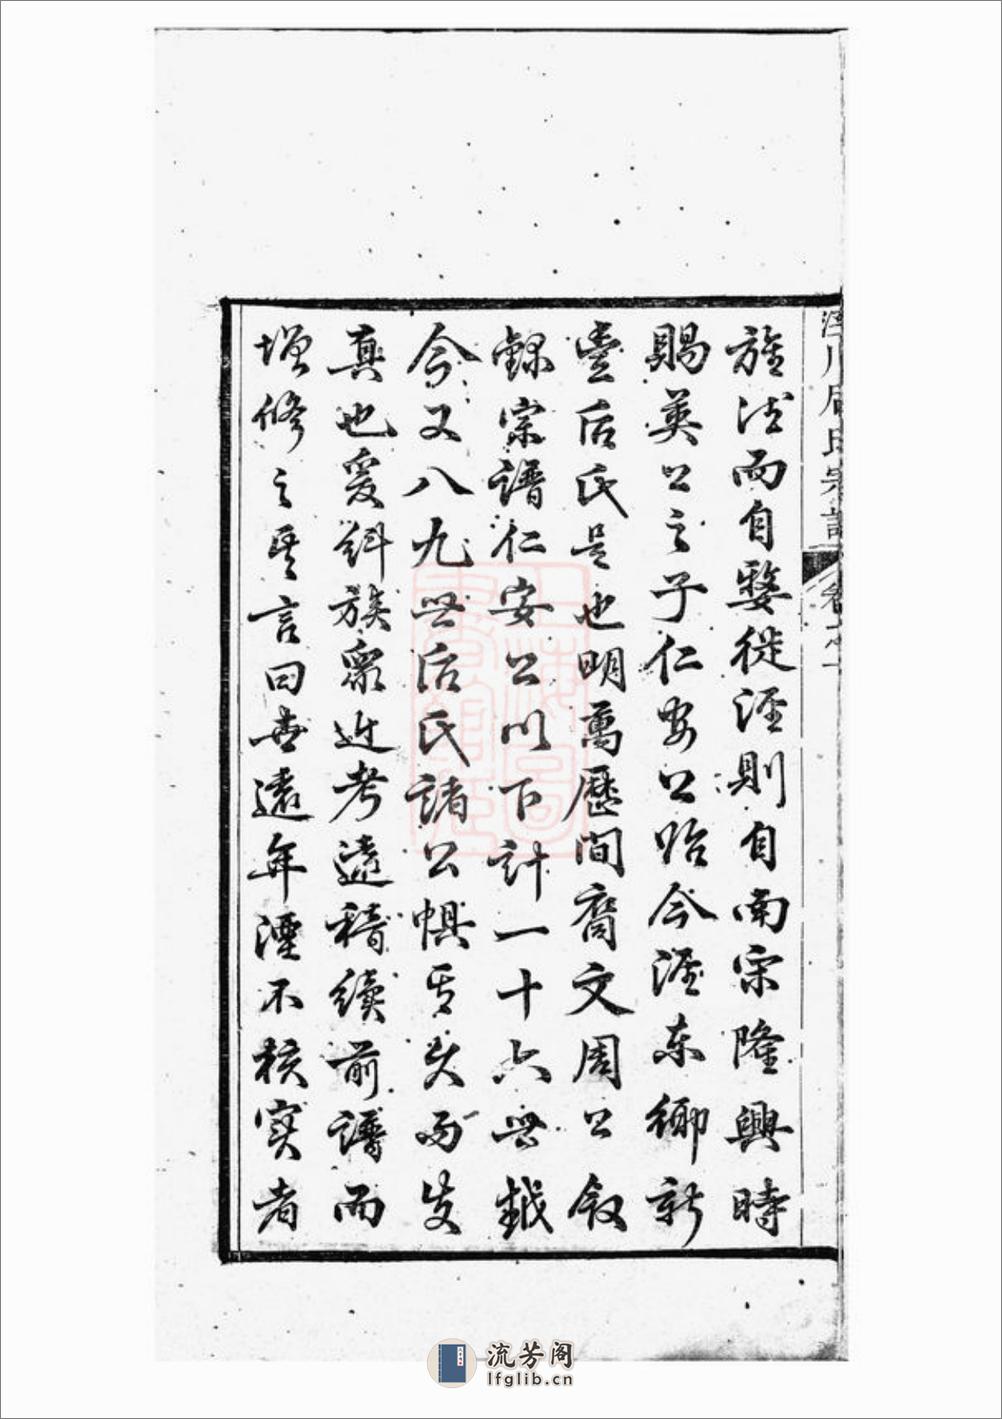 旌法而自婺徙涇則自南宋隆興時
賜英公之子仁安公始今涇東鄉新
豊后氏是也明萬歷間裔文周公叙
錄宗譜仁安公以下計一十六世越
今又八九世后氏諸公懼其失而失
真也爰糾族衆近考遠稽續前譜而
增修之其言曰世遠年湮不核實者
涇川后氏宗譜
卷之一
流芳阁
lfglib.cn